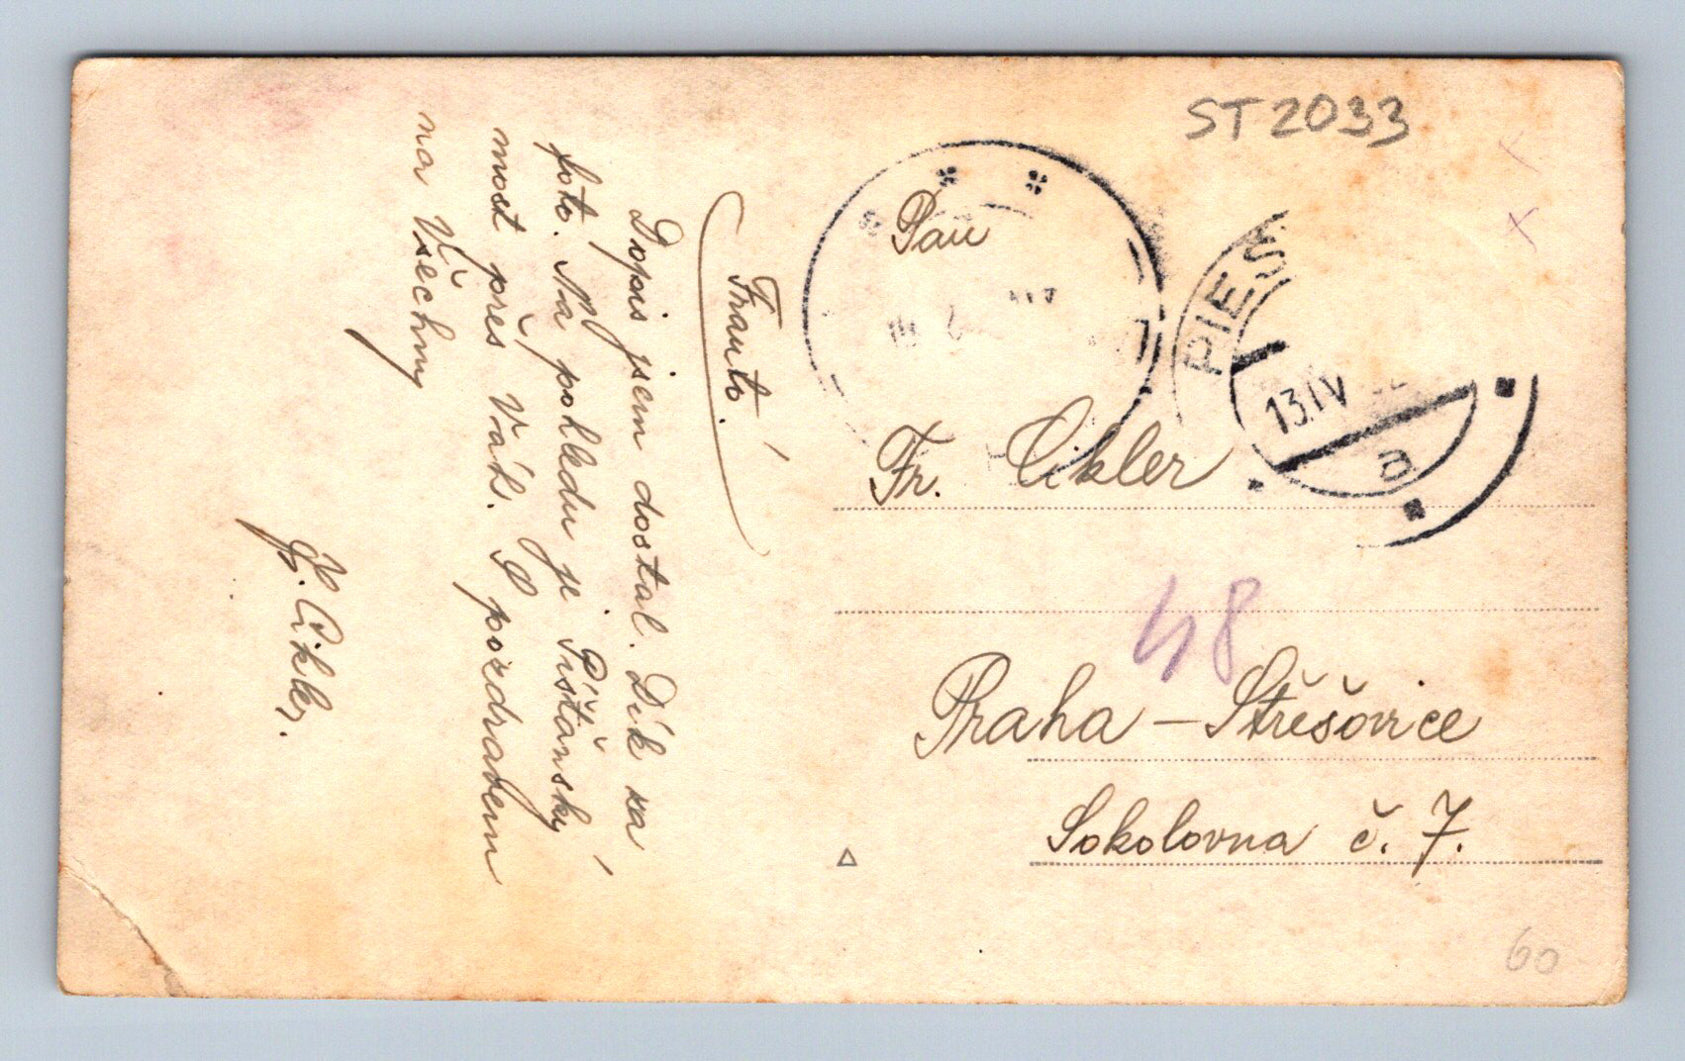 Franto.
Dopis jsem dostal. Dík za
foto. Na pohledu je Píšťanský
most přes Váh. S pozdravem
na Všechny
Cikler.
ST2033
Pan
Fr. Cikler
48
Praha – Střešovice
Sokolovna č. 7.
60
PIEŠ
13.IV
a